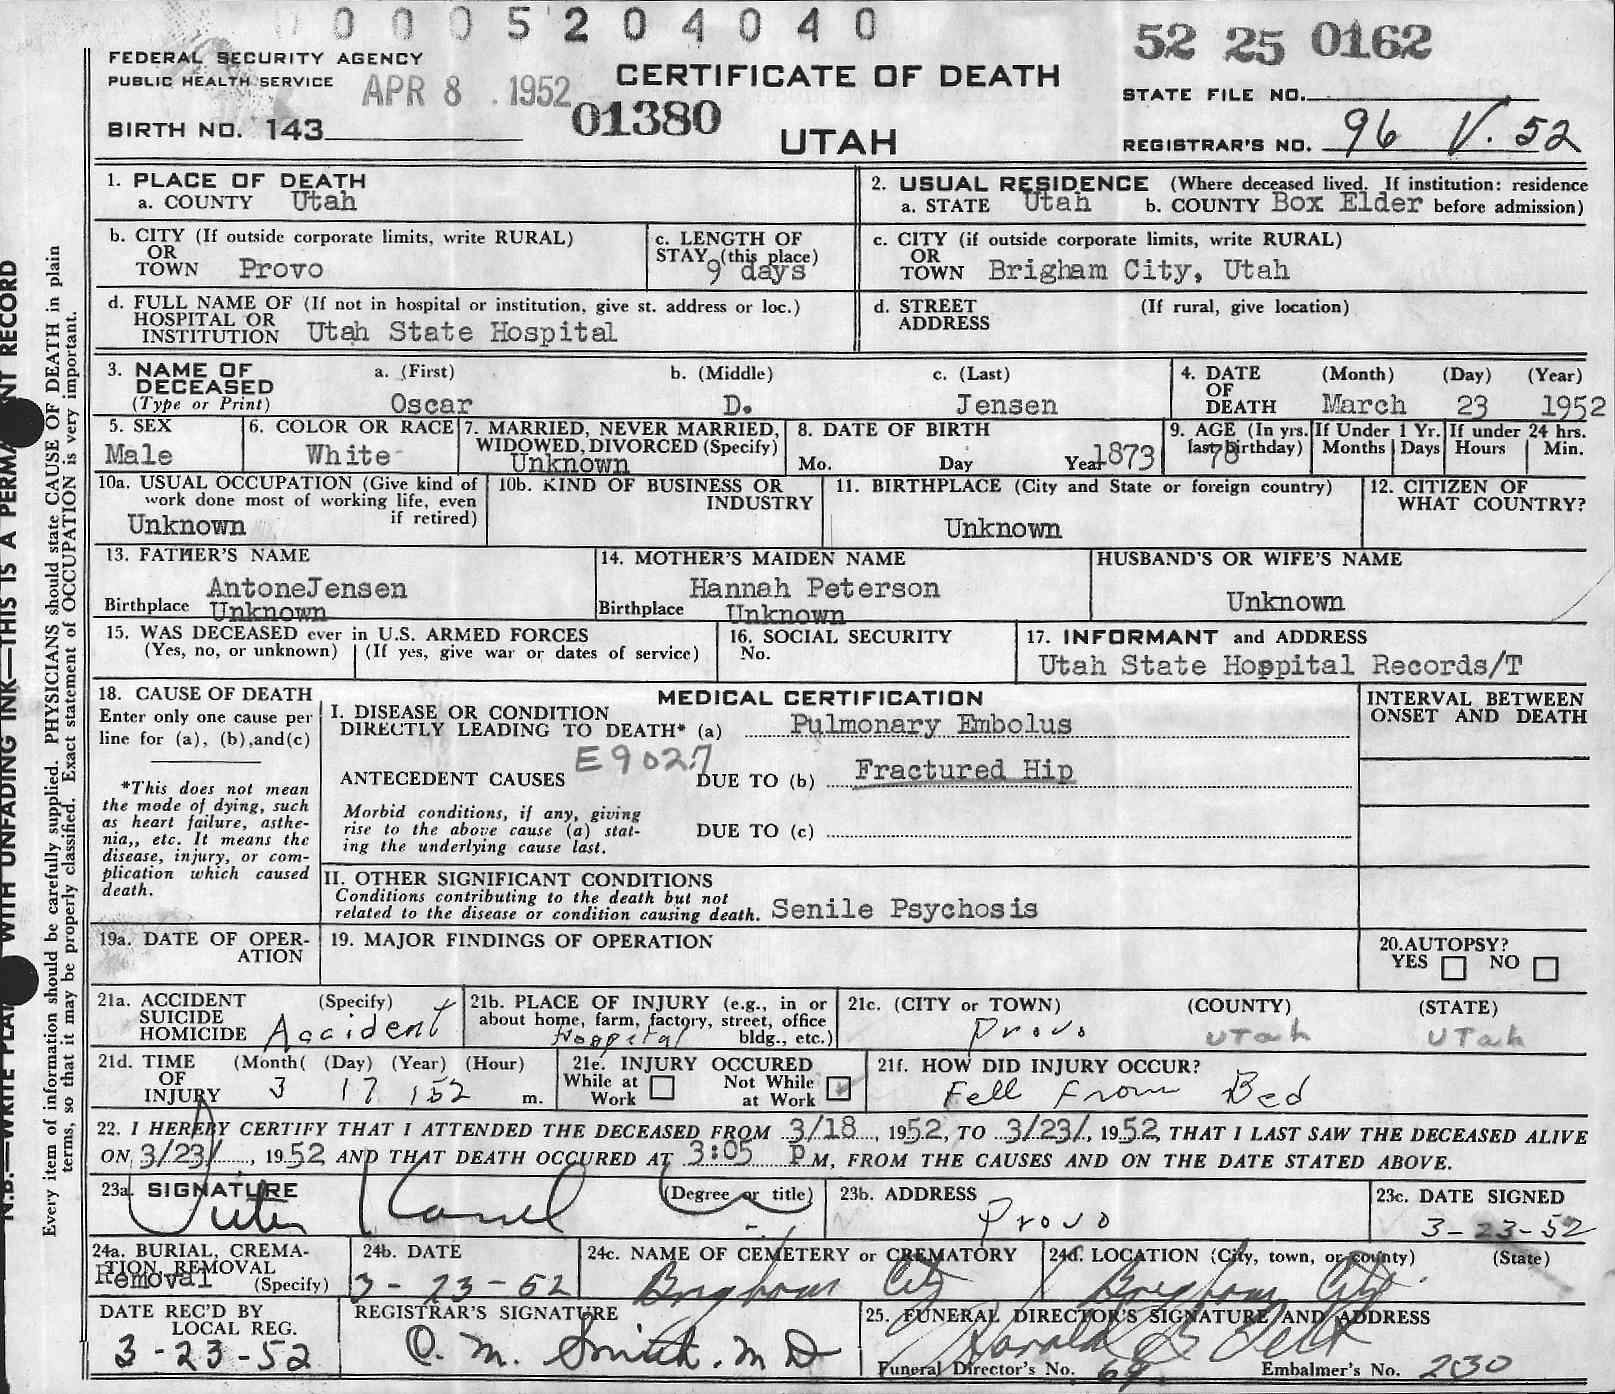 0 0 0 5 2 0 4 0 4 0
52 25 0162
FEDERAL SECURITY AGENCY
PUBLIC HEALTH SERVICE
APR 8 . 1952
CERTIFICATE OF DEATH
STATE FILE NO.
BIRTH NO. 143
01380
UTAH
REGISTRAR'S NO. 96 V. 52
1. PLACE OF DEATH
a. COUNTY Utah
2. USUAL RESIDENCE (Where deceased lived. If institution: residence
a. STATE Utah b. COUNTY Box Elder before admission)
b. CITY (If outside corporate limits, write RURAL)
OR
TOWN Provo
c. LENGTH OF
STAY (this place)
9 days
c. CITY (if outside corporate limits, write RURAL)
OR
TOWN Brigham City, Utah
d. FULL NAME OF (If not in hospital or institution, give st. address or loc.)
HOSPITAL OR
INSTITUTION Utah State Hospital
d. STREET (If rural, give location)
ADDRESS
3. NAME OF a. (First) b. (Middle) c. (Last)
DECEASED
(Type or Print) Oscar D. Jensen
4. DATE (Month) (Day) (Year)
OF
DEATH March 23 1952
5. SEX
Male
6. COLOR OR RACE
White
7. MARRIED, NEVER MARRIED,
WIDOWED, DIVORCED (Specify)
Unknown
8. DATE OF BIRTH
Mo. Day Year 1873
9. AGE (In yrs.
last birthday)
78
If Under 1 Yr.
Months Days
If under 24 hrs.
Hours Min.
10a. USUAL OCCUPATION (Give kind of
work done most of working life, even
if retired)
Unknown
10b. KIND OF BUSINESS OR
INDUSTRY
11. BIRTHPLACE (City and State or foreign country)
Unknown
12. CITIZEN OF
WHAT COUNTRY?
13. FATHER'S NAME
AntoneJensen
Birthplace Unknown
14. MOTHER'S MAIDEN NAME
Hannah Peterson
Birthplace Unknown
HUSBAND'S OR WIFE'S NAME
Unknown
15. WAS DECEASED ever in U.S. ARMED FORCES
(Yes, no, or unknown) (If yes, give war or dates of service)
16. SOCIAL SECURITY
No.
17. INFORMANT and ADDRESS
Utah State Hospital Records/T
18. CAUSE OF DEATH
Enter only one cause per
line for (a), (b),and(c)
*This does not mean
the mode of dying, such
as heart failure, asthe-
nia,, etc. It means the
disease, injury, or com-
plication which caused
death.
MEDICAL CERTIFICATION
I. DISEASE OR CONDITION
DIRECTLY LEADING TO DEATH* (a) Pulmonary Embolus
ANTECEDENT CAUSES E9027 DUE TO (b) Fractured Hip
Morbid conditions, if any, giving
rise to the above cause (a) stat-
ing the underlying cause last.
DUE TO (c)
II. OTHER SIGNIFICANT CONDITIONS
Conditions contributing to the death but not
related to the disease or condition causing death. Senile Psychosis
INTERVAL BETWEEN
ONSET AND DEATH
19a. DATE OF OPER-
ATION
19. MAJOR FINDINGS OF OPERATION
20.AUTOPSY?
YES NO
21a. ACCIDENT (Specify)
SUICIDE
HOMICIDE Accident
21b. PLACE OF INJURY (e.g., in or
about home, farm, factory, street, office
bldg., etc.)
Hospital
21c. (CITY or TOWN) (COUNTY) (STATE)
Provo Utah Utah
21d. TIME (Month( (Day) (Year) (Hour)
OF
INJURY 3 17 152 m.
21e. INJURY OCCURED
While at Work Not While at Work
21f. HOW DID INJURY OCCUR?
Fell From Bed
22. I HEREBY CERTIFY THAT I ATTENDED THE DECEASED FROM 3/18, 1952, TO 3/23/, 1952, THAT I LAST SAW THE DECEASED ALIVE
ON 3/23/, 1952 AND THAT DEATH OCCURED AT 3:05 PM, FROM THE CAUSES AND ON THE DATE STATED ABOVE.
23a. SIGNATURE (Degree or title)
23b. ADDRESS
Provo
23c. DATE SIGNED
3-23-52
24a. BURIAL, CREMA-
TION, REMOVAL
Removal (Specify)
24b. DATE
3-23-52
24c. NAME OF CEMETERY or CREMATORY
Brigham City
24d. LOCATION (City, town, or county) (State)
Brigham City.
DATE REC'D BY
LOCAL REG.
3-23-52
REGISTRAR'S SIGNATURE
O. M. Smith. M D
25. FUNERAL DIRECTOR'S SIGNATURE AND ADDRESS
Harold B Felt
Funeral Director's No. 69. Embalmer's No. 230
N.B.—WRITE PLAI WITH UNFADING INK—THIS IS A PERMA NT RECORD
Every item of information should be carefully supplied. PHYSICIANS should state CAUSE OF DEATH in plain
terms, so that it may be properly classified. Exact statement of OCCUPATION is very important.